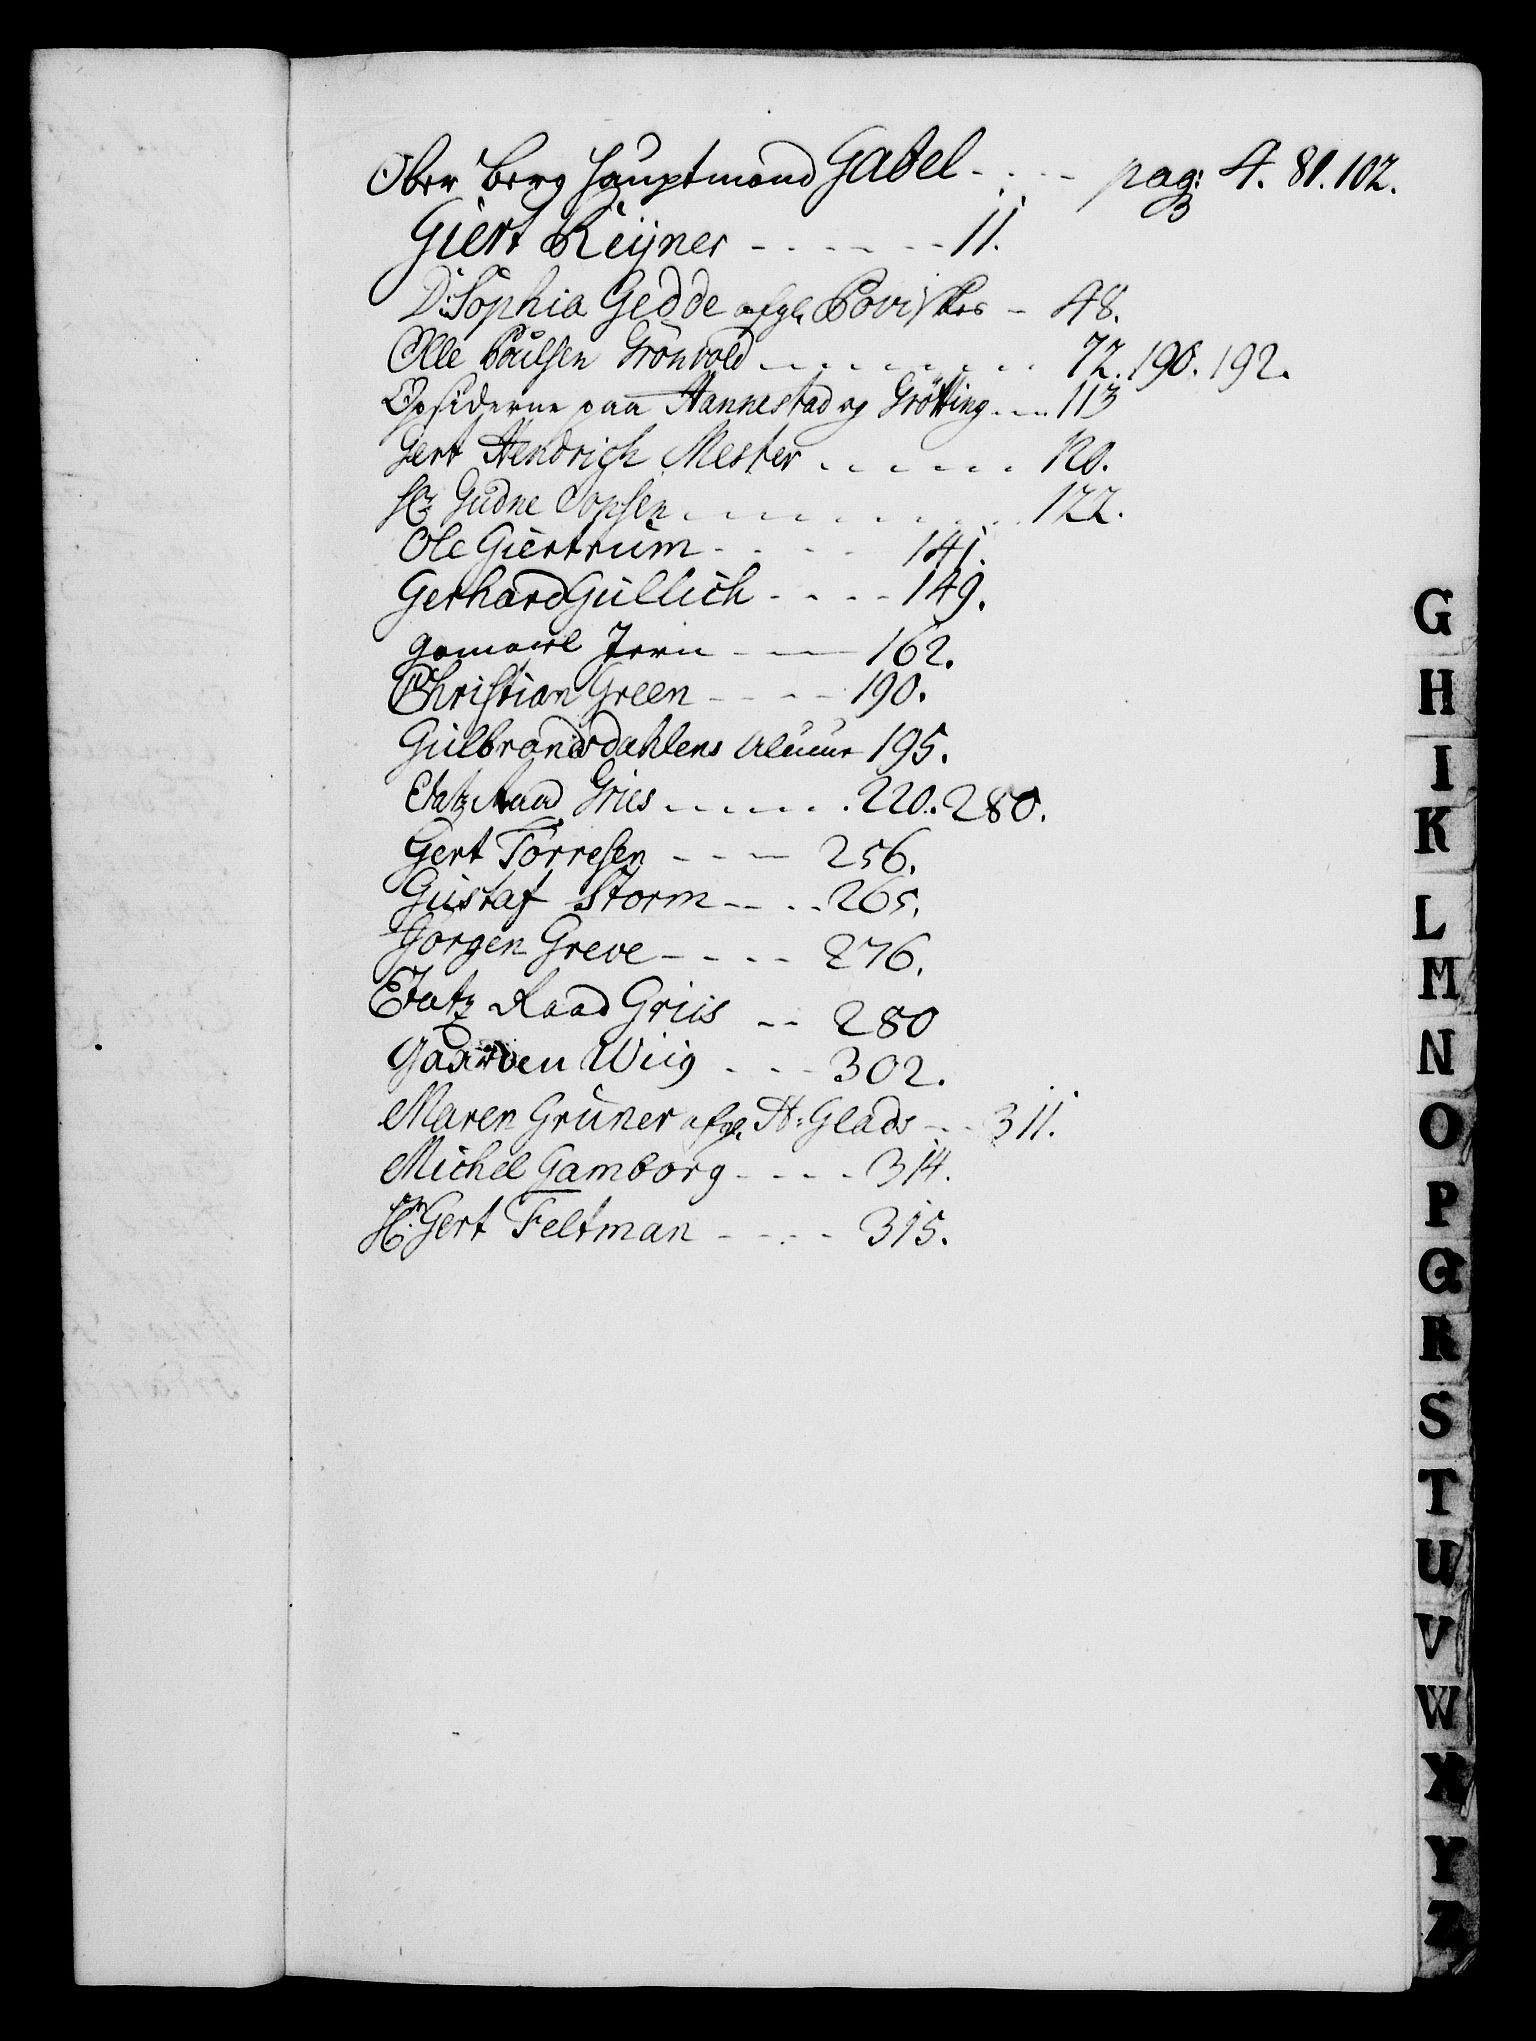 Ober Berg Hauptmand Gabel - - - - pag: 4. 81. 102.
Giert Reijner - - - - - - 11.
D: Sophia Gedde afgl. Povisk - 48.
Olle Poulsen Grönvold - - - - - - - - 72. 190. 192.
Opsiderne paa Hannestad og Grötting - - - 113
Gert Hendrich Mester - - - - - - 120.
Hr Gudne Jopsen - - - - - - - - - 122.
Ole Giertrum - - - - 141.
Gerhard Güllich - - - - 149.
162.
Christian Green - - - - 190.
Gulbrandsdahlens 195.
Etatz Raad Gries - - - - - - 220. 280.
Gert Torresen - - - 256.
Gustaf Storm - - - - 265.
Görgen Greve - - - - 276.
Etatz Raad Griis - - 280
Gaarden Wiig - - - 302.
Maren Gruner afgl. H: Glads - - 311.
Michel Gamborg - - - - 314.
Hr. Gert Feltman - - - - 315.
G
H
I
K
L
M
N
O
P
Q
R
S
T
U
V
W
X
Y
Z